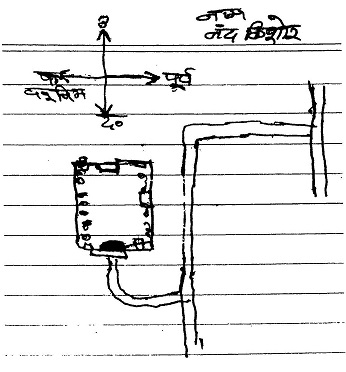 नाम
नंद किशोर
उ
पूर्व
पश्चिम
द०